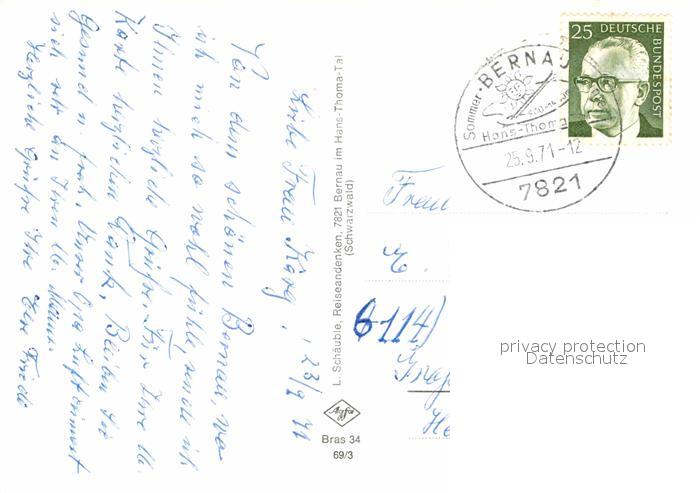 Liebe Frau König, 23/9 71
Von dem schönen Bernau, wo
ich mich so wohl fühle, sende ich
Ihnen herzliche Grüße. Für Ihre lb.
Karte herzlichen Dank, Bleiben Sie
gesund u. froh. Unser Opa
sich sehr an Ihren lb.
Herzliche Grüße Ihre Frieda
L. Schäuble, Reiseandenken, 7821 Bernau im Hans-Thoma-Tal
(Schwarzwald)
Agfa
Bras 34
69/3
25 DEUTSCHE
BUNDESPOST
Sommer- BERNAU
Hans-Thoma
25.9.71-12
7821
Frau
6114)
privacy protection
Datenschutz